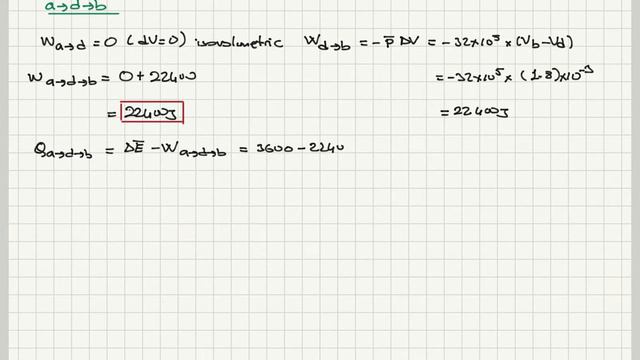 a→d→b
W a→d = 0 (dV=0) isovolumetric W d→b = -P̄ ΔV = -32×10⁵ × (Vb-Vd)
W a→d→b = 0 + 22400 = -32×10⁵ × (1-8)×10⁻³
= 22400J = 22400J
Q a→d→b = ΔE - W a→d→b = 3600 - 2240